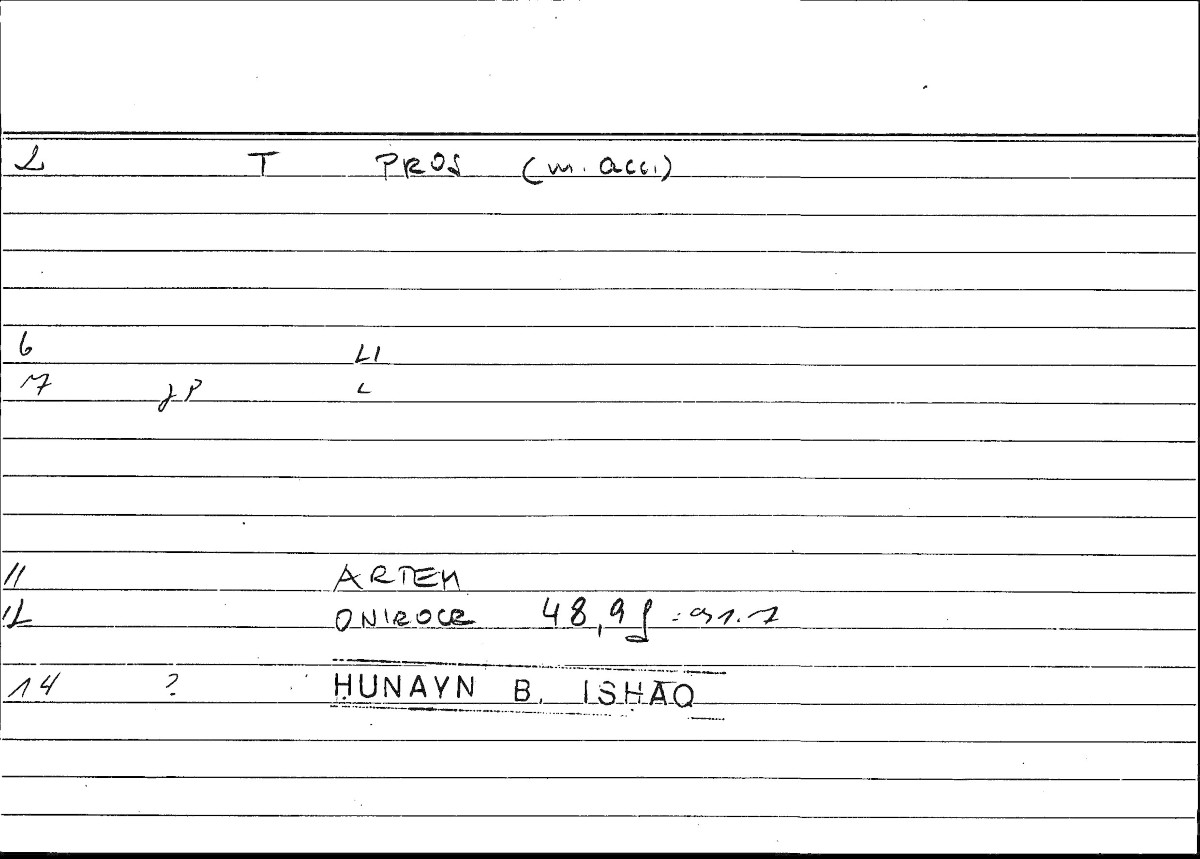 2 T PROS (m. acc.)
6 LI
7 JP L
11 ARTEM
12 ONIROCR 48,9f = 91.7
14 ? ḤUNAYN B. ISḤĀQ